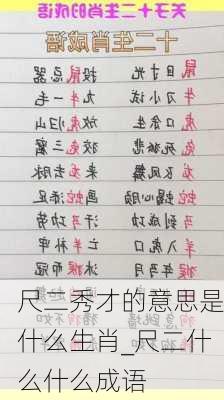 关于十二生肖的成语
十二生肖成语
鼠目寸光 投鼠忌器
牛刀小试 九牛一毛
虎口余生 放虎归山
兔死狐悲 狡兔三窟
龙飞凤舞 来龙去脉
蛇蝎心肠 画蛇添足
马到成功 汗马功劳
羊入虎口
猴年马月
尺二秀才的意思是
什么生肖_尺二什
么什么成语